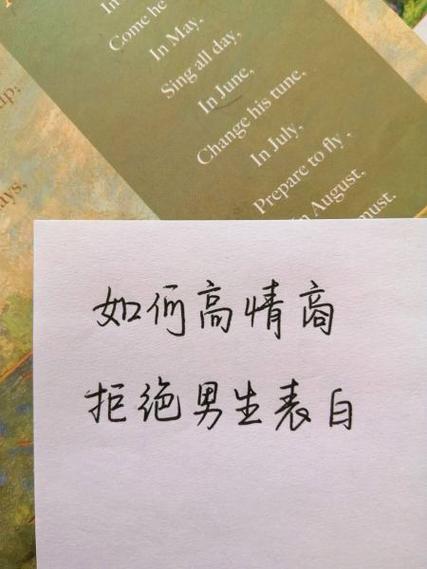 In
Come he
In May,
Sing all day,
In June,
Change his tune,
In July,
Prepare to fly,
In August,
must.
ays,
如何高情商
拒绝男生表白